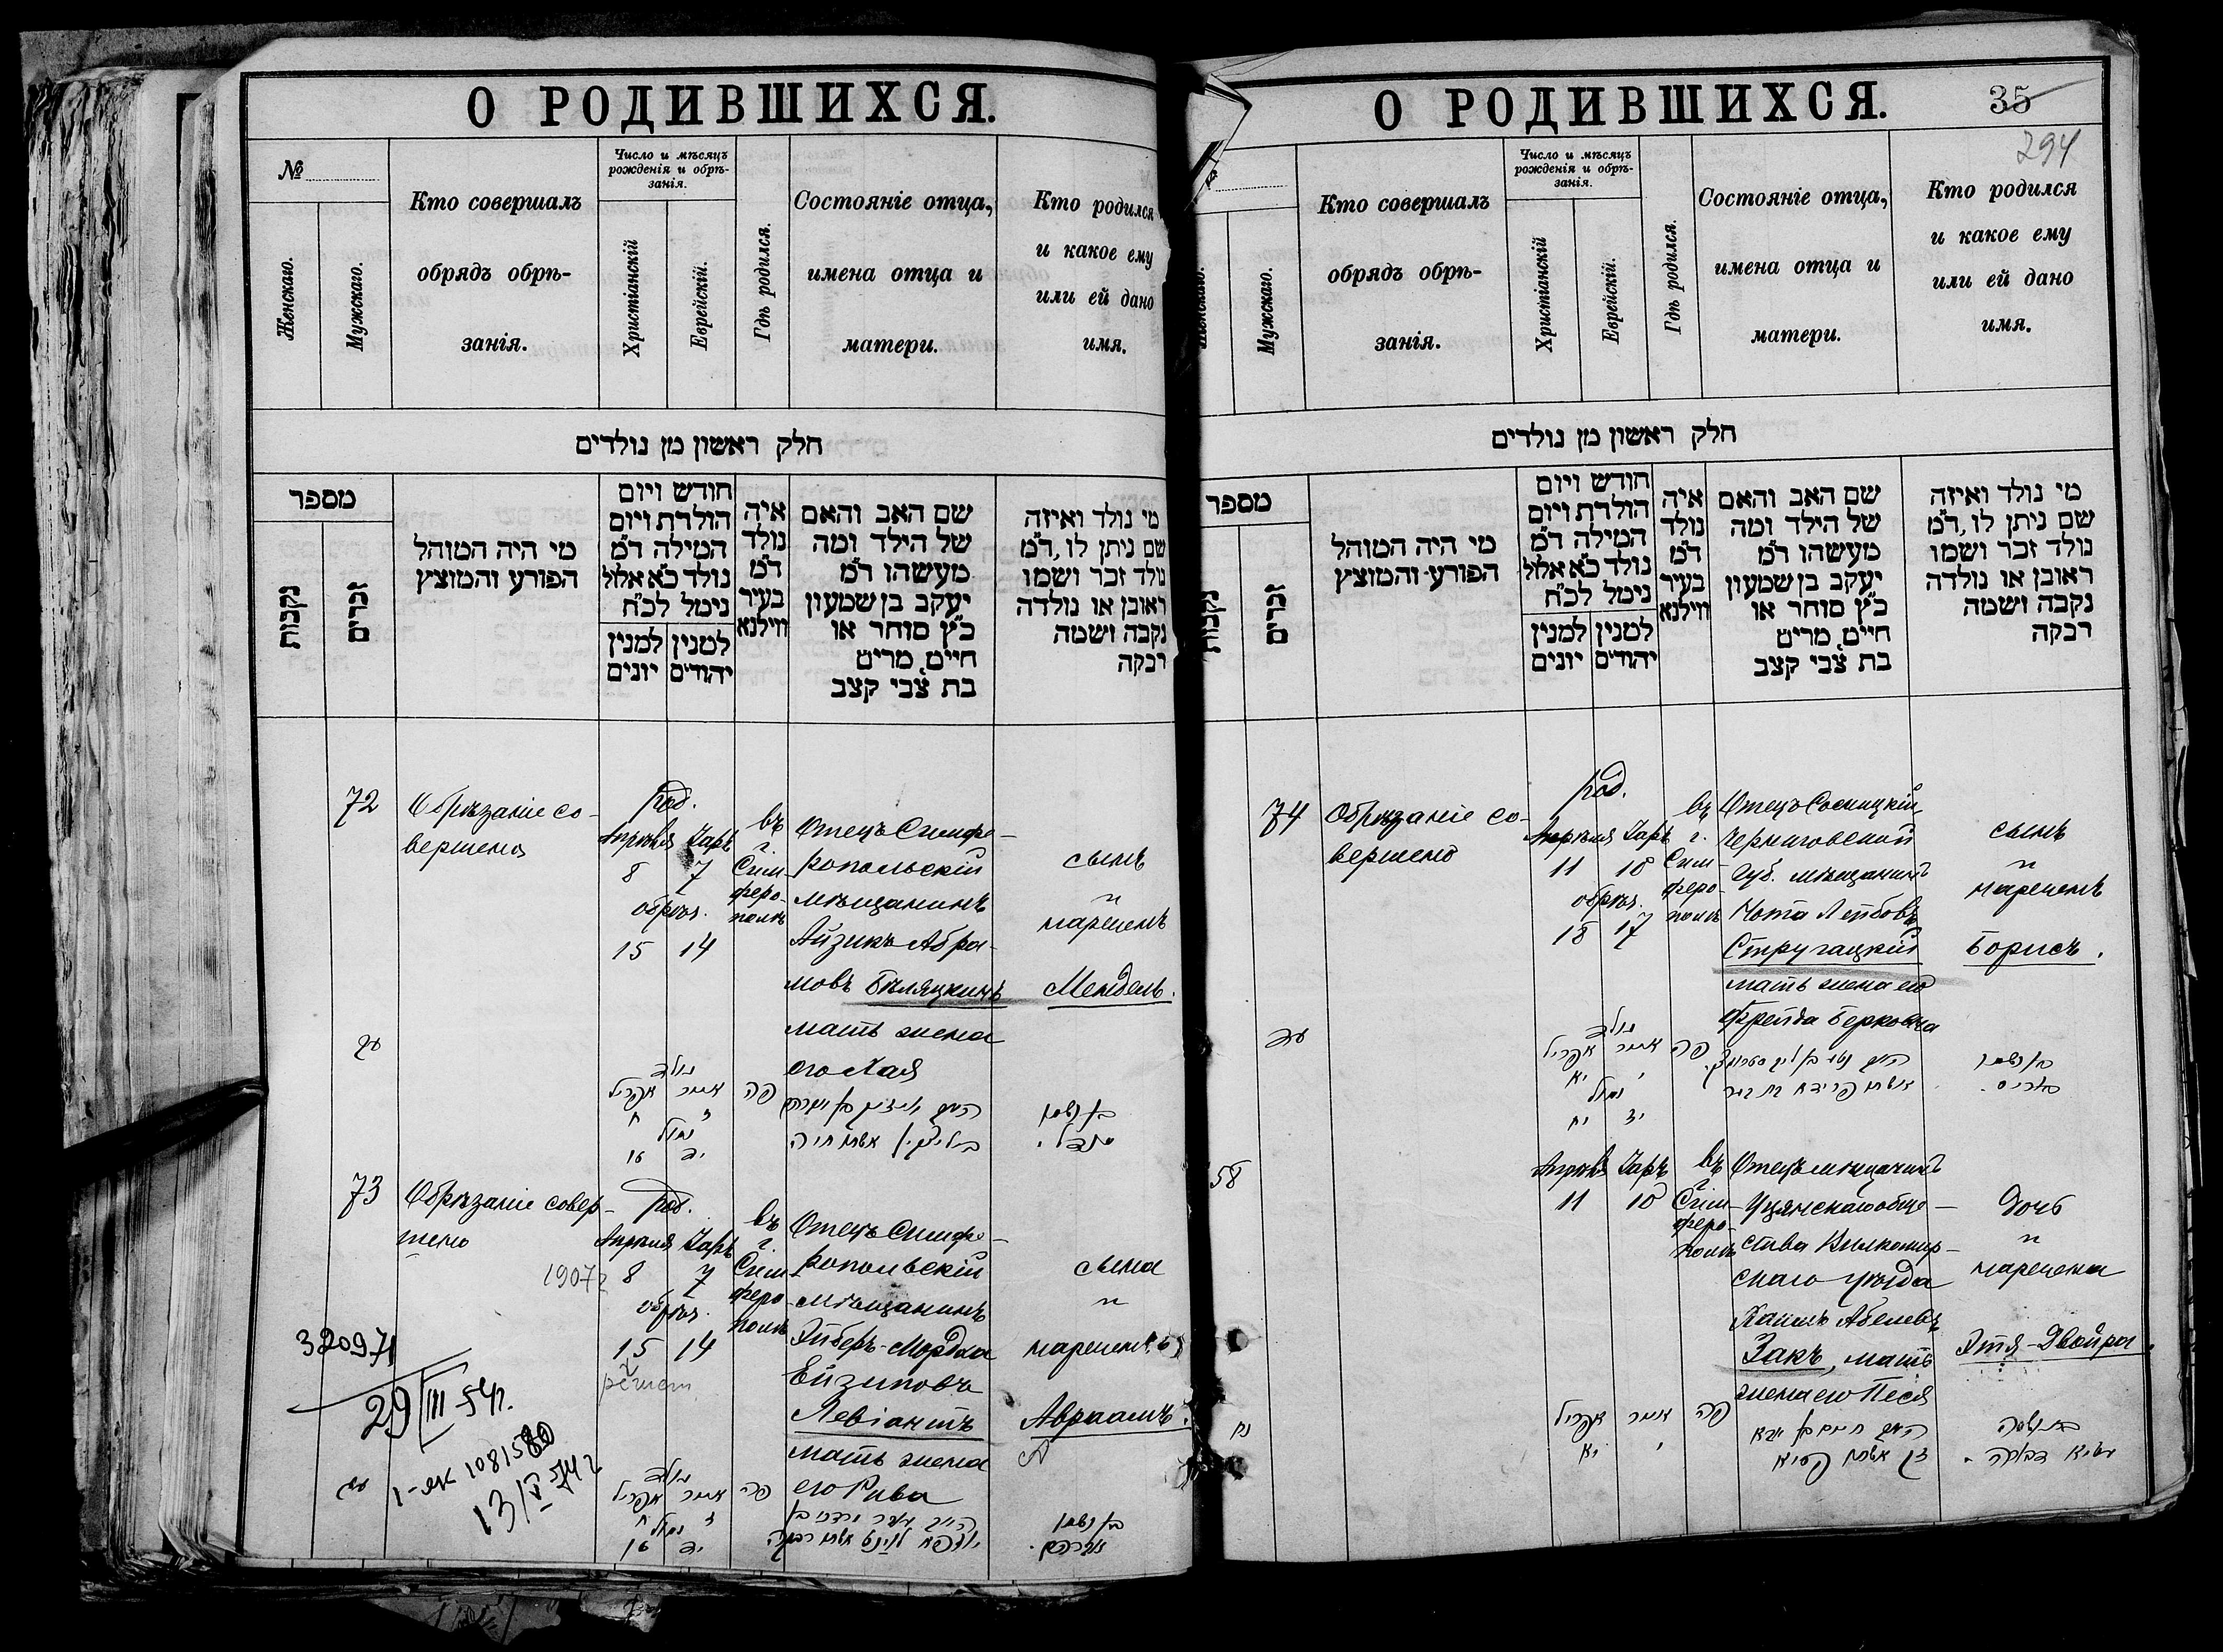 О РОДИВШИХСЯ.
№
Женскаго.
Мужскаго.
Кто совершалъ
обрядъ обрѣ-
занія.
Число и мѣсяцъ
рожденія и обрѣ-
занія.
Христіанскій
Еврейскій.
Гдѣ родился.
Состояніе отца,
имена отца и
матери.
Кто родился
и какое ему
или ей дано
имя.
חלק ראשון מן נולדים
מספר
נקבות
זכרים
מי היה המוהל
הפורע והמוצץ
חודש ויום
הולדת ויום
המילה ד״מ
נולד כ״א אלול
נימל לכ״ח
למנין יהודים
למנין יונים
איה
נולד
ד״מ
בעיר
ווילנא
שם האב והאם
של הילד ומה
מעשהו ד״מ
יעקב בן שמעון
כ״ץ סוחר או
חיים, מרים
בת צבי קצב
מי נולד ואיזה
שם ניתן לו, ד״מ
נולד זכר ושמו
ראובן או נולדה
נקבה ושמה
רבקה
72
Обрѣзаніе со-
вершено
род.
Апрѣля Іаръ
8 7
обрѣз.
15 14
въ
г.
Сим-
феро-
полѣ
Отецъ Симфе-
ропольскій
мѣщанинъ
Айзикъ Абра-
мовъ Биляцкинъ
мать жена
его Хая
сынъ
и
нареченъ
Мендель.
עב
נולד
אייר אפריל
ז ח
נמול
יד טו
פה
חיה
בן ושמו
מנדל.
73
Обрѣзаніе совер-
шено
род.
Апрѣля Іаръ
8 7
обрѣз.
15 14
въ
г.
Сим-
феро-
полѣ
Отецъ Симфе-
ропольскій
мѣщанинъ
Эйберъ-Мордха
Ейзиповъ
Левіантъ
мать жена
его Рива
сына
и
нареченъ
Авраамъ.
1907 г
32097
29/III-54г.
1081580
13/V 54 г
עג
נולד
אייר אפריל
ז ח
נמול
יד טו
פה
בן ושמו
אברהם.
О РОДИВШИХСЯ.
35
294
Женскаго.
Мужскаго.
Кто совершалъ
обрядъ обрѣ-
занія.
Число и мѣсяцъ
рожденія и обрѣ-
занія.
Христіанскій
Еврейскій.
Гдѣ родился.
Состояніе отца,
имена отца и
матери.
Кто родился
и какое ему
или ей дано
имя.
חלק ראשון מן נולדים
מספר
נקבות
זכרים
מי היה המוהל
הפורע והמוצץ
חודש ויום
הולדת ויום
המילה ד״מ
נולד כ״א אלול
נימל לכ״ח
למנין יהודים
למנין יונים
איה
נולד
ד״מ
בעיר
ווילנא
שם האב והאם
של הילד ומה
מעשהו ד״מ
יעקב בן שמעון
כ״ץ סוחר או
חיים, מרים
בת צבי קצב
מי נולד ואיזה
שם ניתן לו, ד״מ
נולד זכר ושמו
ראובן או נולדה
נקבה ושמה
רבקה
74
Обрѣзаніе со-
вершено
род.
Апрѣля Іаръ
11 10
обрѣз.
18 17
въ
г.
Сим-
феро-
полѣ
Отецъ Сосницкій,
Черниговской
Губ. мѣщанинъ
Нота Лейбовъ
Стругацкій
мать жена его
Фрейда Берковна
сынъ
и
нареченъ
Борисъ.
עד
נולד
אייר אפריל
י יא
נמול
יז יח
פה
בן ושמו
באריס.
58
Апрѣля Іаръ
11 10
въ
г.
Сим-
феро-
полѣ
Отецъ мѣщанинъ
Уцянскаго обще-
ства Вилкомир-
скаго уѣзда
Хаимъ Абелевъ
Закъ, мать
жена его Песя
дочь
и
наречена
Этя-Двойра.
נח
אייר אפריל
י יא
פה
בת ושמה
עטיא דבורה.